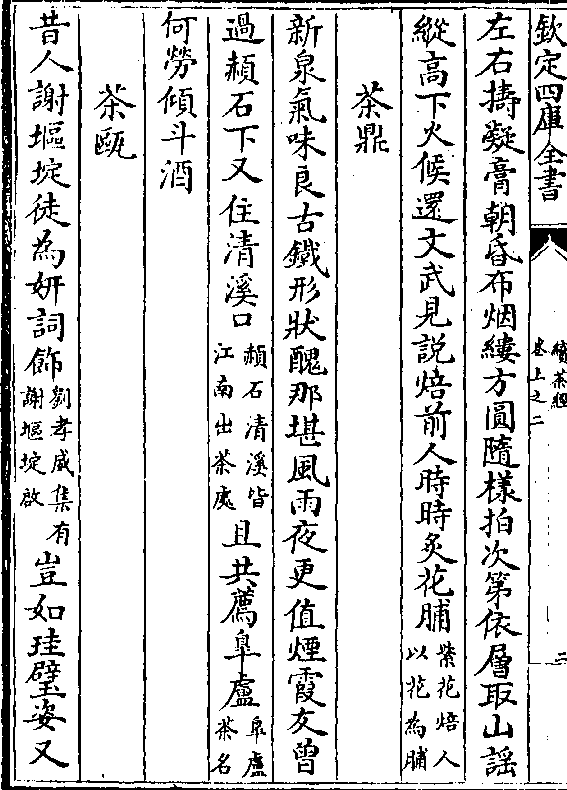 欽定四庫全書
續茶經
卷上之二
三
左右擣凝膏朝昏布烟縷方圓隨樣拍次第依層取山謡
縱高下火候還文武見說焙前人時時炙花脯紫花焙人以花為脯
茶鼎
新泉氣味良古鐵形狀醜那堪風雨夜更值煙霞友曾
過赬石下又住清溪口赬石清溪皆江南出茶處且共薦皐盧皐盧茶名
何勞傾斗酒
茶甌
昔人謝塸埞徒為妍詞飾劉孝威集有謝塸埞啟豈如珪璧姿又